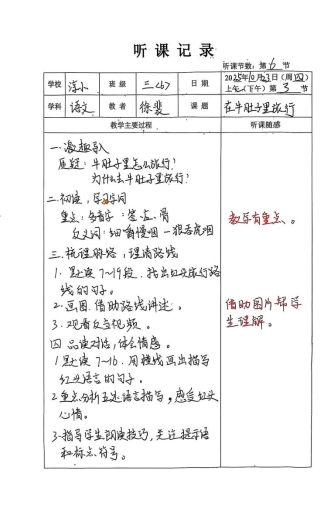 听课记录
听课节数：第6节
学校 班级 三<6> 日期 2025年10月23日（周四） 上午（下午）第3节
学科 语文 教者 徐裴 课题 在牛肚子里旅行
教学主要过程 听课随感
一.激趣导入
质疑：牛肚子里怎么旅行？
为什么去牛肚子里旅行？
二.初读，学习字词
重点：多音字：答、应、骨
反义词：细嚼慢咽—狼吞虎咽
教学有重点。
三.梳理脉络，理清路线
1.默读7~19段，找出红头旅行路
线的句子。
2.画图，借助路线讲述。
借助图片帮学
生理解。
3.观看反刍视频。
四.品读对话，体会情感。
1.默读7~16.用横线画出描写
红头语言的句子。
2.重点分析语言描写，感受红头
心情。
3.指导学生朗读技巧，关注提示语
和标点符号。